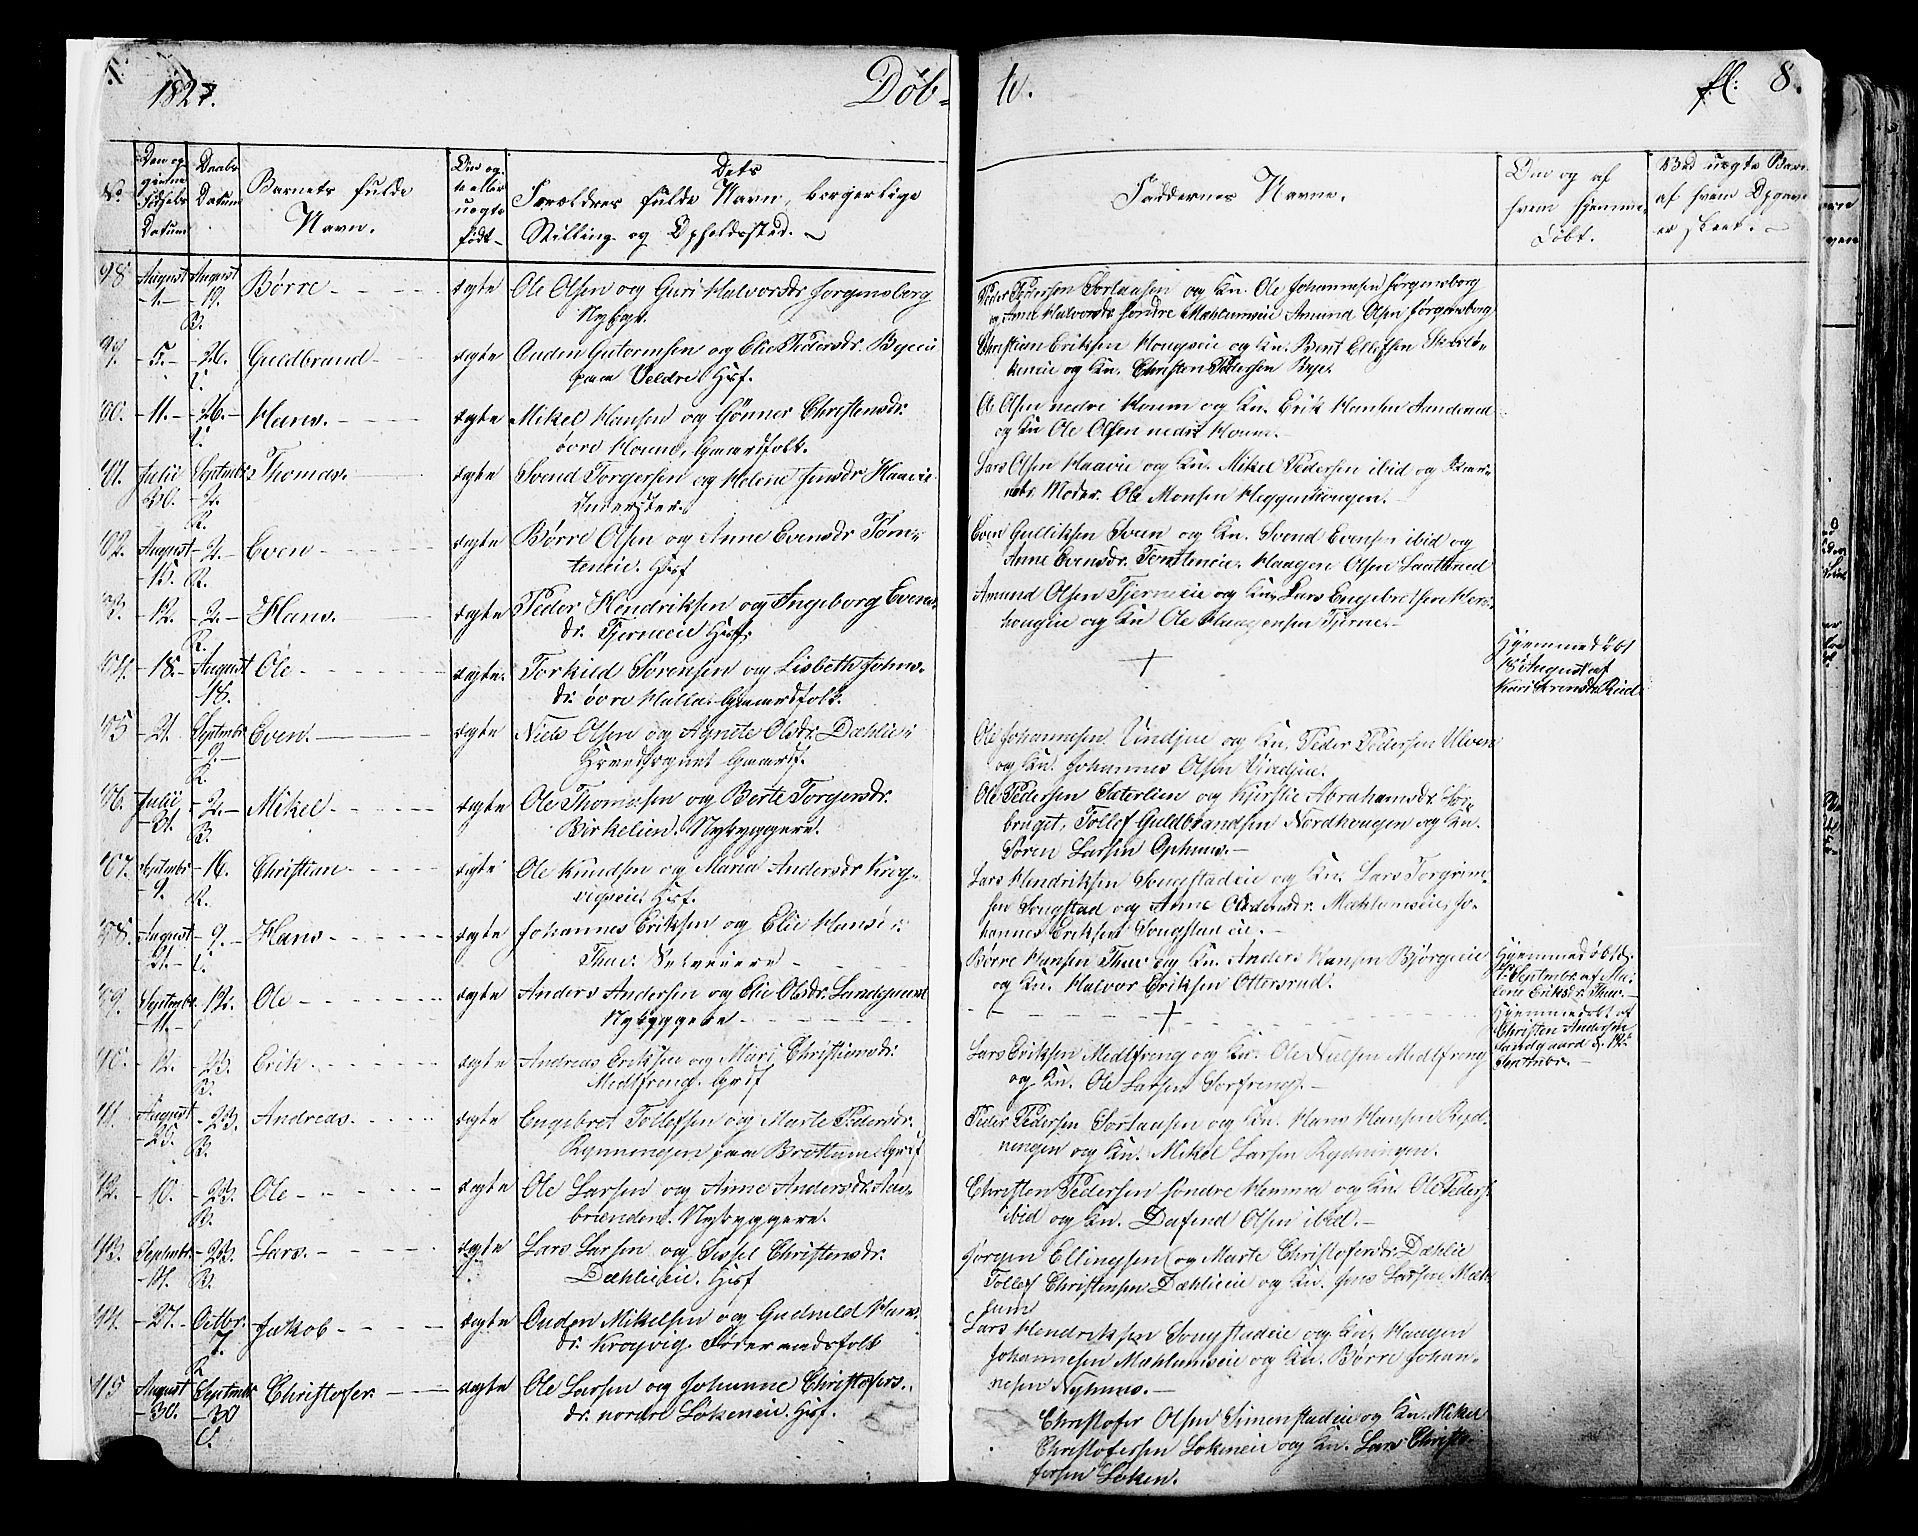 1827.
Døb-
te.
fl: 8.
No.
Den og
Fødsels
Datum
Daabs
Datum
Barnets fulde
Navn.
Om æg-
te eller
uægte
født
Dets
Forældres fulde Navn, borgerlige
Stilling og Opholdssted.
Faddernes Navne.
Om og af
hvem hjemme-
døbt.
Ved uægte Børn
af hvem Opgave
er skeet.
98. August August Børre ægte Ole Olsen og Guri Halvorsdr Jorgensborg
1. 19. Nybygr.
B.
Peder Pedersen Sorlausen og Kn. Ole Johannesen Jorgensborg
og Anne Halvorsdr søndre Mæhlumseie Amund Olsen Jorgensborg
99. 5. 26. Guldbrand ægte Ouden Gutormsen og Elie Pedersdr. Byeeie
paa Veldre Husf.
Christian Eriksen Hougseie og Kn. Bent Ellefsen
og Kn. Christen Pedersen Bye.
11. 26. Hans. ægte Mikel Hansen og Gønner Christensdr.
øvre Houm, Gaardfolk.
Ole Olsen nedre Houm og Kn. Erik Hansen
og Kn Ole Olsen nedre Houm.
Julii Septembr Thomas. ægte Svend Torgersen og Helene Jensdr Haavie
2. Inderster.
R.
Lars Olsen Haavie og Kn. Mikel Pedersen ibid og Bar-
nets Moder. Ole Monsen Heggenhougen.
02. August 2. Even ægte Børre Olsen og Anne Evensdr Tom-
15. R. teneie. Husf
Even Gulliksen Sveen og Kn. Svend Evensen ibid og
Anne Evensdr. Tomteneie. Haagen Olsen
12. 2. Hans. ægte Peder Hendriksen og Ingeborg Evens
R. dr. Tjerneeie Husf.
Amund Olsen Tjerneeie og Kn. Lars Engebretsen
hougeie og Kn Ole Haagensen Tjerne.
18. August Ole ægte. Torkild Sørensen og Lisbeth Johns-
18. dr. øvre Halla. Gaardfolk.
+
Hjemmedøbt
18 August af
Kari
21. Septembr Even. ægte Niels Olsen og Agnete Olsdr. Dæhlie i
2.
R.
Gaardf.
Ole Johannesen Vindjue og Kn. Peder Pedersen Ulven
og Kn. Johannes Olsen Vindjue.
06. Julii 2. Mikel ægte Ole Thomesen og Berte Torgersdr.
31. B. Birkelien. Nybyggere.
Ole Pedersen Saterlien og Kjerstie Abrahamsdr.
bruget, Tollef Guldbrandsen Nordhougen og Kn.
Søren Larsen Ophuus.
07. Septembr 16. Christian ægte Ole Knudsen og Maria Andersdr Krog-
9. R. vigseie. Husf.
Lars Hendriksen Songstadeie og Kn. Lars Torgrim-
sen Songstad og Anne Mæhlumseie, Jo-
hannes Eriksen Songstadeie.
08. August 9. Hans ægte Johannes Eriksen og Elie Hans
31. Thue. Selveiere
Børre Hansen Thue og Kn. Anders Hansen Bjørgeeie
og Kn. Halvor Eriksen Ottersrud.
Hjemmedøbt d.
Septembr. af Ma-
Eriksdr. Thue.
09. Septembr 12. Ole ægte Anders Andersen og Elie Olsdr.
11. Nybyggere
+
Hjemmedøbt af
Christen Andersen
Sandgaard d. 12te
Septembr.
10. 12. 23. Erik ægte Andreas Eriksen og Mari Christiansdr.
B. Medlfreng. Grsf
Lars Eriksen Medlfreng og Kn. Ole Nielsen Medlfreng
og Kn. Ole Larsen Sorfreng.
11. August 23. Andreas. ægte Engebret Tollefsen og Marte Pedersdr.
25. B. Rynningen paa Brøttum Grsf
Peder Pedersen Sorlausen og Kn. Hans Hansen Ryd-
ningen og Kn. Mikel Larsen Rydningen.
12. 10. 23. Ole ægte Ole Larsen og Anne Andersdr. Aas-
B. brænden. Nybyggere.
Christen Pedersen søndre Hemma og Kn. Ole Peders.
ibid og Kn. Dafind Olsen ibid.
13. Septembr. 23. Lars. ægte Lars Larsen og Sissel Christensdr.
14. B. Dæhlieeie. Husf
Jorgen Ellingsen og Marte Christofersdr. Dæhlie
Tollef Christensen Dæhlieeie og Kn. Jens Larsen Mæh-
lum
14. 27. Octbr. Jakob ægte Ouden Mikelsen og Gudnild Hans
7. dr. Krogvig Føderaadsfolk
R.
Lars Hendriksen Songstadeie og Kn. Haagen
Johannesen Mæhlumseie og Kn. Børre Johan-
nesen Nyhuus.
15 August Septembr Christofer ægte Ole Larsen og Johanne Christofers-
30. 30 dr. nordre Lökeneie. Husf.
Christofer Olsen Simenstadeie og Kn. Mikel
Christofersen Lökeneie og Kn. Lars Christo-
fersen Löken.